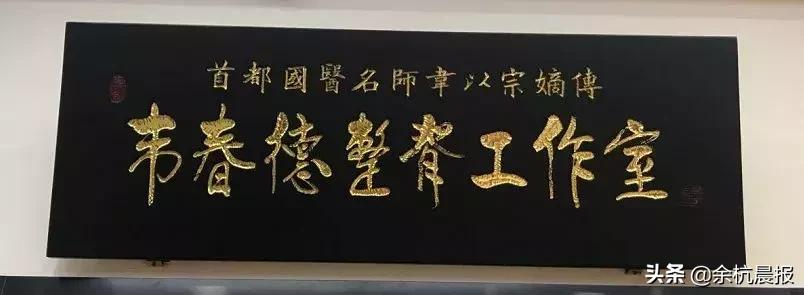 首都國醫名師韋以宗嫡傳
韦春德整脊工作室
头条 @余杭晨报